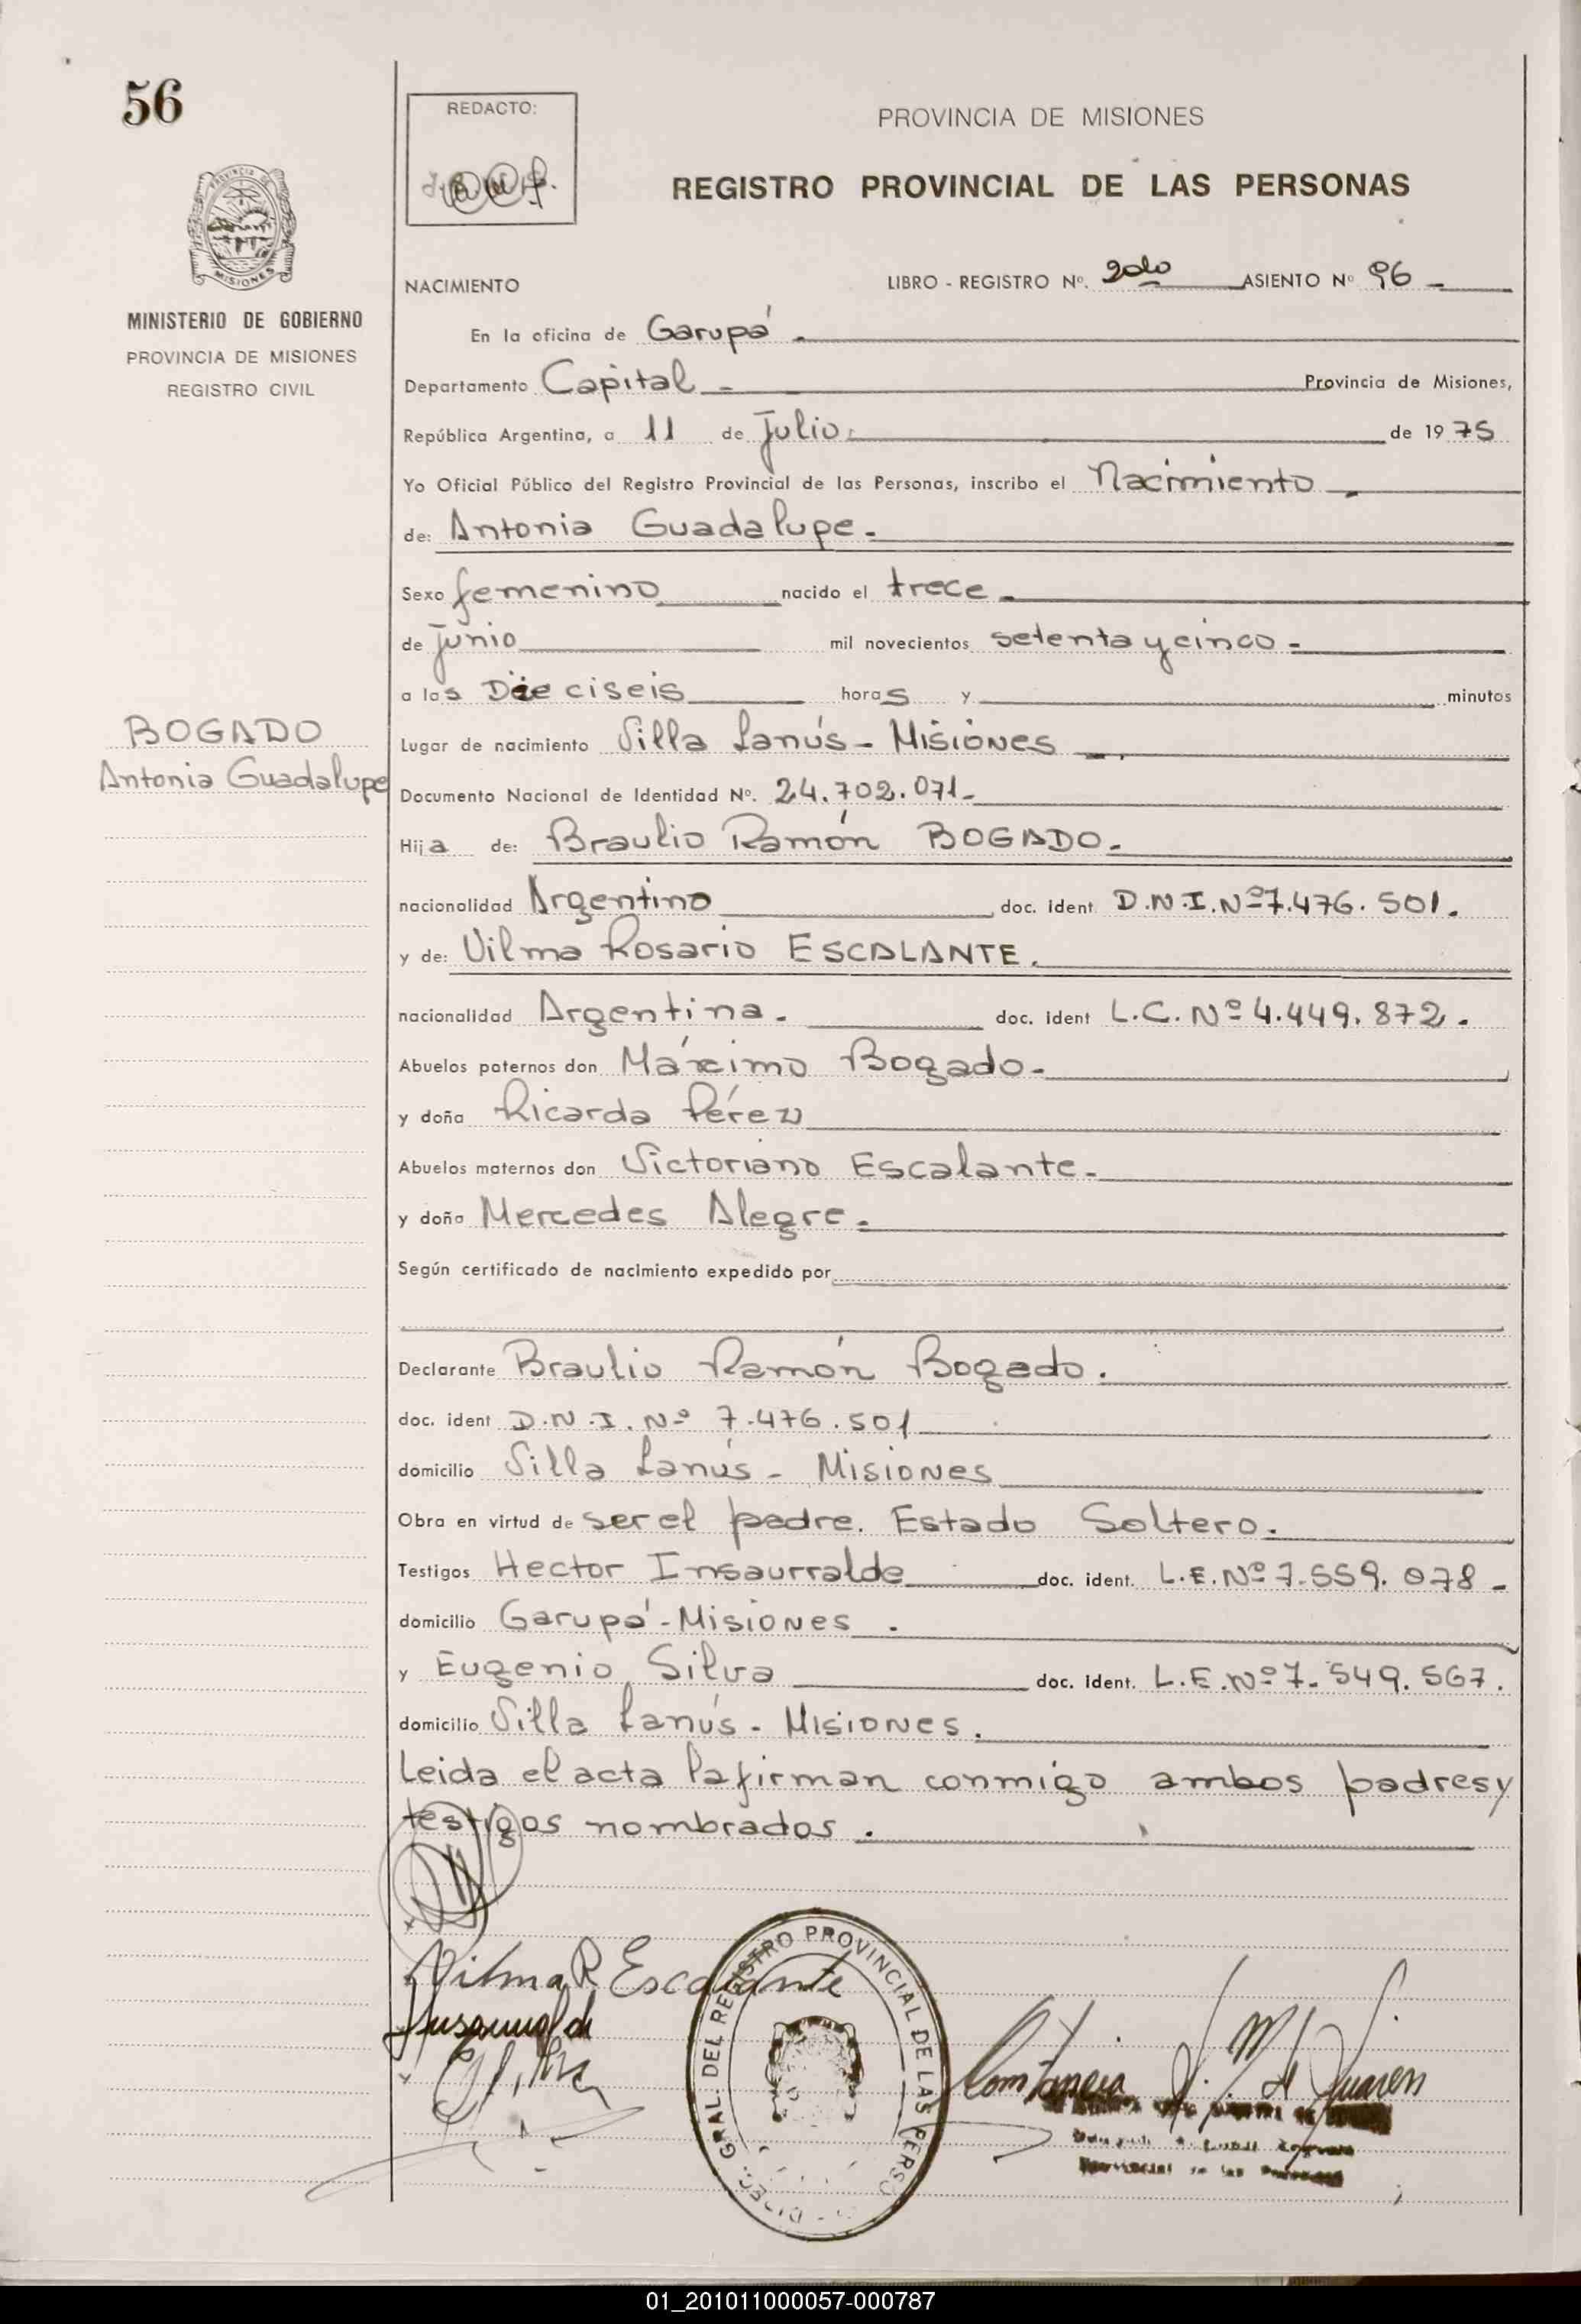 56
REDACTO:
PROVINCIA DE MISIONES
REGISTRO PROVINCIAL DE LAS PERSONAS
PROVINCIA DE
MISIONES
MINISTERIO DE GOBIERNO
PROVINCIA DE MISIONES
REGISTRO CIVIL
NACIMIENTO LIBRO - REGISTRO Nº. ASIENTO Nº 96
En la oficina de Garupá
Departamento Capital Provincia de Misiones,
República Argentina, a 11 de Julio de 1975
Yo Oficial Público del Registro Provincial de las Personas, inscribo el Nacimiento
de: Antonia Guadalupe.
Sexo femenino nacido el trece
de Junio mil novecientos setenta y cinco
a las Dieciseis horas y minutos
BOGADO
Antonia Guadalupe
Lugar de nacimiento Villa Lanús - Misiones
Documento Nacional de Identidad Nº. 24.702.071
Hija de: Braulio Ramón BOGADO.
nacionalidad Argentino doc. ident. D.N.I.Nº7.476.501.
y de: Vilma Rosario ESCALANTE.
nacionalidad Argentina. doc. ident L.C. Nº 4.449.872.
Abuelos paternos don Máximo Bogado
y doña Ricarda Pérez
Abuelos maternos don Victoriano Escalante
y doña Mercedes Alegre.
Según certificado de nacimiento expedido por
Declarante Braulio Ramón Bogado.
doc. ident D.N.I. Nº 7.476.501
domicilio Villa Lanús - Misiones
Obra en virtud de ser el padre. Estado Soltero.
Testigos Hector Insaurralde doc. ident. L.E.Nº 7.559.078
domicilio Garupá - Misiones.
y Eugenio Silva doc. ident. L.E.Nº 7.549.567.
domicilio Villa Lanús - Misiones.
Leida el acta la firman conmigo ambos padres y
testigos nombrados.
Vilma R Escalante
DIREC. GRAL. DEL REGISTRO PROVINCIAL DE LAS PERSO
01_201011000057-000787